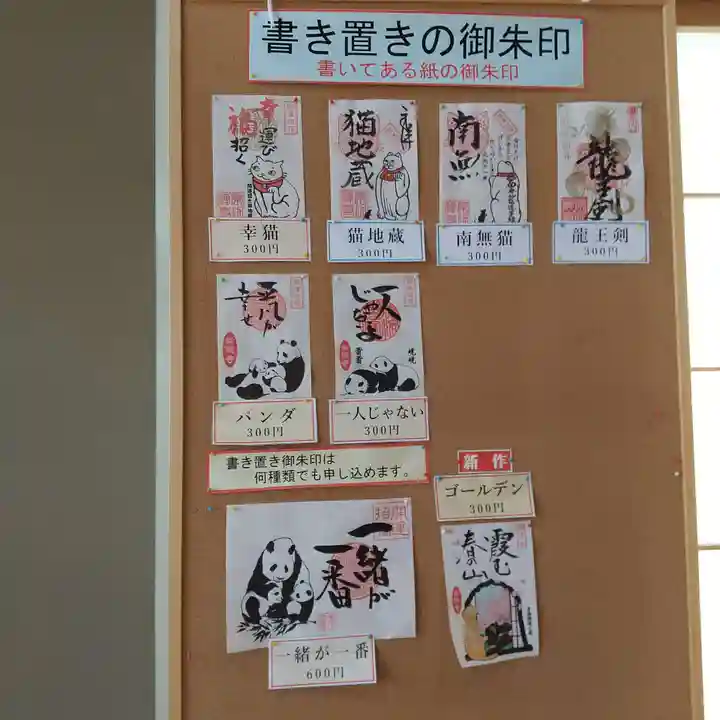 書き置きの御朱印
書いてある紙の御朱印
幸運び
福招く
幸猫
300円
猫地蔵
猫地蔵
300円
南無
南無猫
300円
龍王剣
龍王剣
300円
平凡が
幸せ
パンダ
300円
一人
じゃないよ
一人じゃない
300円
書き置き御朱印は
何種類でも申し込めます。
新作
ゴールデン
300円
霞む
春の山
一緒が
一番
一緒が一番
600円